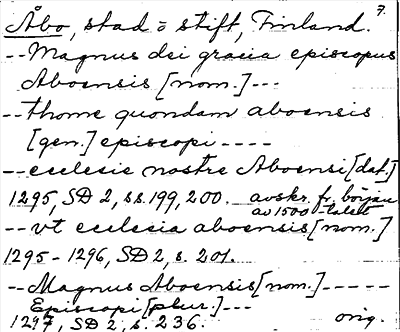 7.
Åbo, stad o stift, Finland.
-- Magnus dei gracia episcopus
Aboensis [nom.] ---
-- thome quondam aboensis
[gen.] episcopi ----
-- ecclesie nostre Aboensi [dat.]
1295, SD 2, ss. 199, 200. avskr. fr. början
av 1500-talet
-- vt ecclesia aboensis [nom.]
1295-1296, SD 2, s. 201.
-- Magnus Aboensis [nom.] -----
Episcopi [plur.] ---
1297, SD 2, s. 236. orig.